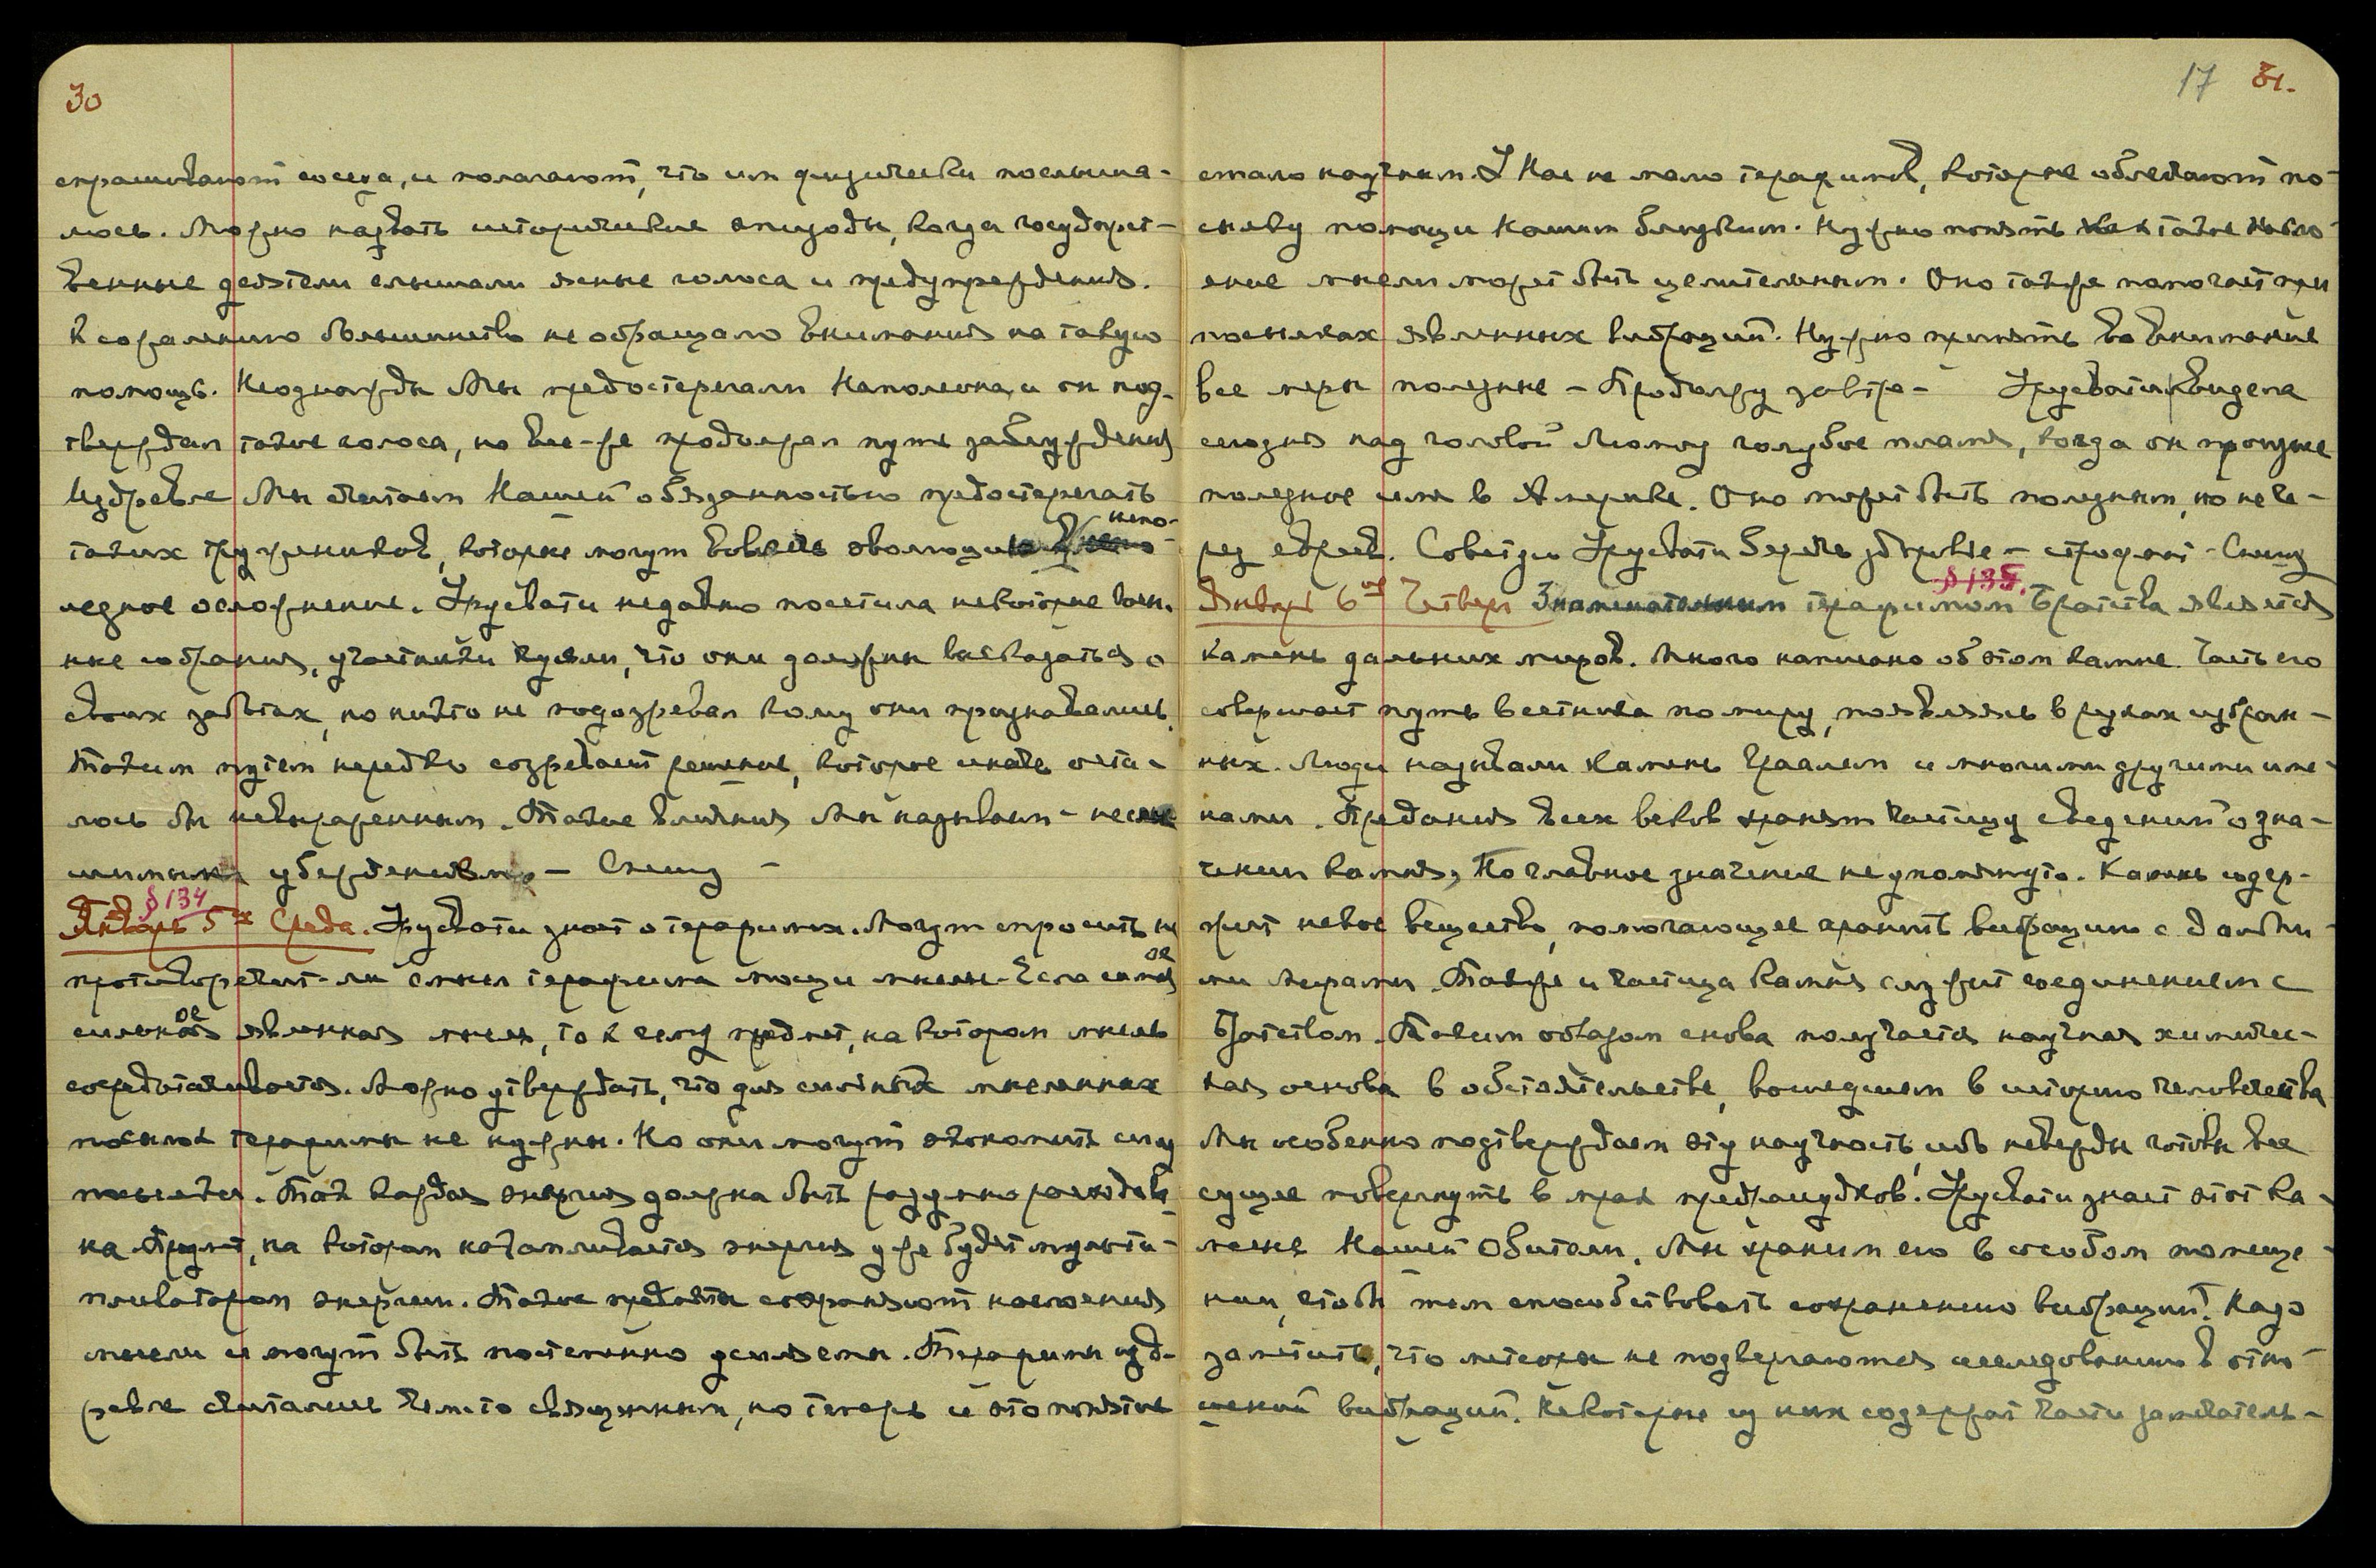 30
спрашивают соседа, и полагают, что им физически послыша-
лось. Можно назвать исторические эпизоды, когда государст-
венные деятели слышали ясные голоса и предупреждения.
К сожалению большинство не обращало внимания на такую
помощь. Неоднажды Мы предостерегали Наполеона, и он под-
тверждал такие голоса, но все-же продолжал путь заблуждения
Издревле Мы считаем Нашей обязанностью предостерегать
таких тружеников, которые могут вовлечь эволюцию в непо-
ледное осложнение. Урусвати недавно посетила некоторые воен-
ные собрания, участники чуяли, что они должны высказаться о
своих заботах, но никто не подозревал кому они признавались.
Таким путем нередко созревает решение, которое иначе оста-
лось бы невыраженным. Такие влияния Мы называем - неслы-
шимыми убеждениями - Спешу -
§ 134
Январь 5ое Среда. Урусвати знает о терафимах. Могут спросить не
противоречит-ли смысл терафима мощи мысли. Если самое
сильное явленная мысль, то к чему предмет, на котором мысль
сосредотачивается. Можно утверждать, что для сильных мысленных
посылок терафимы не нужны. Но они могут экономить силу
посылки. Так каждая энергия должна быть разумно расходова-
на. Предмет, на котором накапливается энергия уже будет мульти-
пликатором энергии. Такие предметы сохраняют наслоения
мысли и могут быть постепенно усиляемы. Терафимы изд-
ревле считались чем-то священным, но теперь и это понятие
17 31.
стало научным. У Нас не мало терафимов, которые облегчают по-
сылку помощи Нашим близким. Нужно понять как такое насло-
ение мысли может быть целительным. Оно также помогает при
посылках явленных вибраций. Нужно принять во внимание
все меры полезные - Продолжу завтра - Урусвати видела
сегодня над головой Люмоу голубое пламя, когда он произнес
полезное имя в Америке. Оно может быть полезным, но не че-
рез евреев. Советую Урусвати беречь здоровье - строфант - Спешу
§ 135.
Января 6ое Четверг Знаменательным терафимом Братства является
камень дальних миров. Много написано об этом камне. Часть его
совершает путь вестника по миру, появляясь в руках избран-
ных. Люди называли камень Граалем и многими другими име-
нами. Предания всех веков хранят частицу сведений о зна-
чении камня, Но главное значение не упомянуто. Камень содер-
жит некое вещество, помогающее хранить вибрацию с дальни-
ми мирами. Также и частица камня служит соединением с
Братством. Таким образом снова получается научная химичес-
кая основа в обстоятельстве, вошедшем в историю человечества
Мы особенно подтверждаем эту научность, ибо невежды готовы все
сущее повергнуть в прах предрассудков. Урусвати знает этот ка-
мень Нашей Обители. Мы храним его в особом помеще-
нии, чтобы тем способствовать сохранению вибраций. Надо
заметить, что метеоры не подвергаются исследованию в отно-
шении вибраций. Некоторые из них содержат части замечатель-